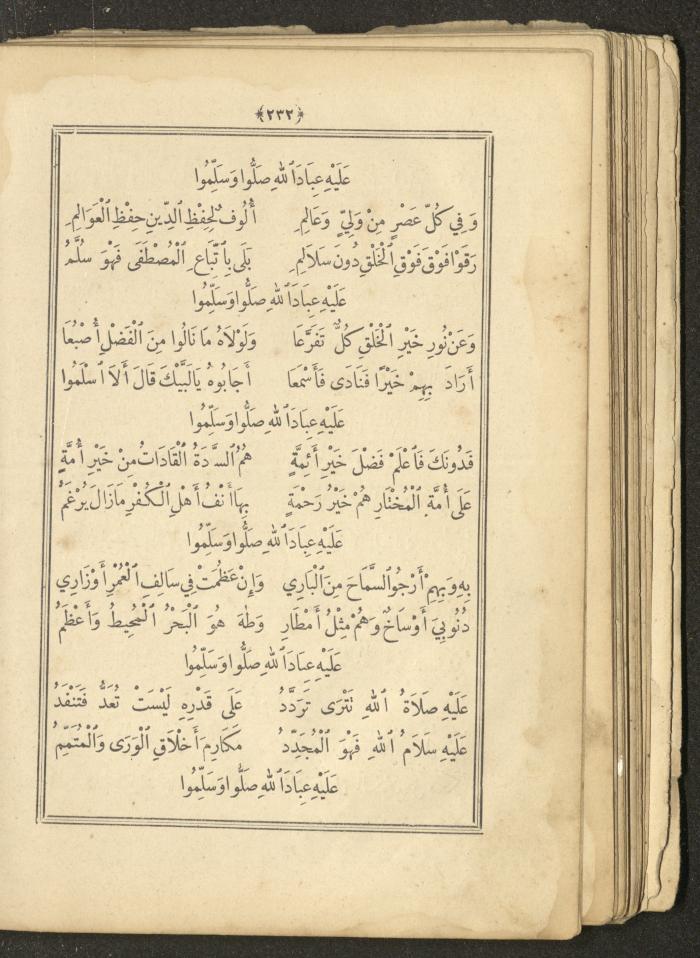 ﴿٢٣٢﴾
عَلَيْهِ عِبَادَ ٱللهِ صَلُّوا وَسَلِّمُوا
وَفِي كُلِّ عَصْرٍ مِنْ وَلِيٍّ وَعَالِمِ أُلُوفٌ لِحِفْظِ الدِّينِ حِفْظِ الْعَوَالِمِ
رَقَوْا فَوْقَ فَوْقِ الْخَلْقِ دُونَ سَلَالِمِ بَلَى بِاتِّبَاعِ الْمُصْطَفَى فَهْوَ سُلَّمُ
عَلَيْهِ عِبَادَ ٱللهِ صَلُّوا وَسَلِّمُوا
وَعَنْ نُورِ خَيْرِ الْخَلْقِ كُلٌّ تَفَرَّعَا وَلَوْلَاهُ مَا نَالُوا مِنَ الْفَضْلِ أُصْبُعَا
أَرَادَ بِهِمْ خَيْرًا فَنَادَى فَأَسْمَعَا أَجَابُوهُ يَالَبَّيْكَ قَالَ أَلَا ٱسْلَمُوا
عَلَيْهِ عِبَادَ ٱللهِ صَلُّوا وَسَلِّمُوا
فَدُونَكَ فَٱعْلَمْ فَضْلَ خَيْرِ أَئِمَّةٍ هُمُ السَّادَةُ الْقَادَاتُ مِنْ خَيْرِ أُمَّةٍ
عَلَى أُمَّةِ الْمُخْتَارِ هُمْ خَيْرُ رَحْمَةٍ بِهَا أَنْفُ أَهْلِ الْكُفْرِ مَازَالَ يُرْغَمُ
عَلَيْهِ عِبَادَ ٱللهِ صَلُّوا وَسَلِّمُوا
بِهِ وَبِهِمْ أَرْجُو السَّمَاحَ مِنَ الْبَارِي وَإِنْ عَظُمَتْ فِي سَالِفِ الْعُمْرِ أَوْزَارِي
ذُنُوبِيَ أَوْسَاخٌ وَهُمْ مِثْلُ أَمْطَارِ وَطٰهَ هُوَ الْبَحْرُ الْمُحِيطُ وَأَعْظَمُ
عَلَيْهِ عِبَادَ ٱللهِ صَلُّوا وَسَلِّمُوا
عَلَيْهِ صَلَاةُ ٱللهِ تَتْرَى تَرَدَّدُ عَلَى قَدْرِهِ لَيْسَتْ تُعَدُّ فَتَنْفَدُ
عَلَيْهِ سَلَامُ ٱللهِ فَهْوَ الْمُجَدِّدُ مَكَارِمَ أَخْلَاقِ الْوَرَى وَالْمُتَمِّمُ
عَلَيْهِ عِبَادَ ٱللهِ صَلُّوا وَسَلِّمُوا